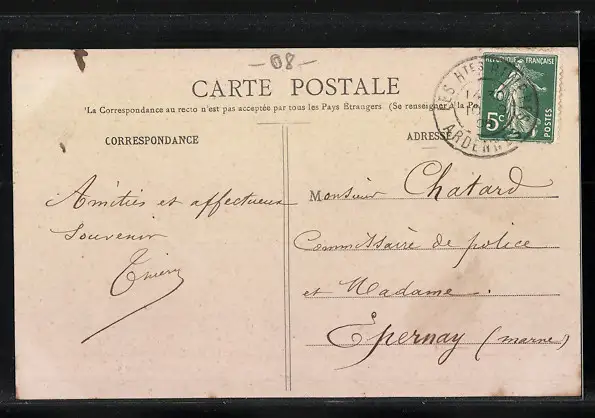 -08-
CARTE POSTALE
'La Correspondance au recto n'est pas acceptée par tous les Pays Etrangers (Se renseigner à la Po
CORRESPONDANCE
ADRESSE
RÉPUBLIQUE FRANÇAISE
5c
POSTES
LES HTES RIVIERES
14
ARDENNES
Amitiés et affectueux
souvenir
Thiéry
Monsieur Chatard
Commissaire de police
et Madame.
Epernay (marne)